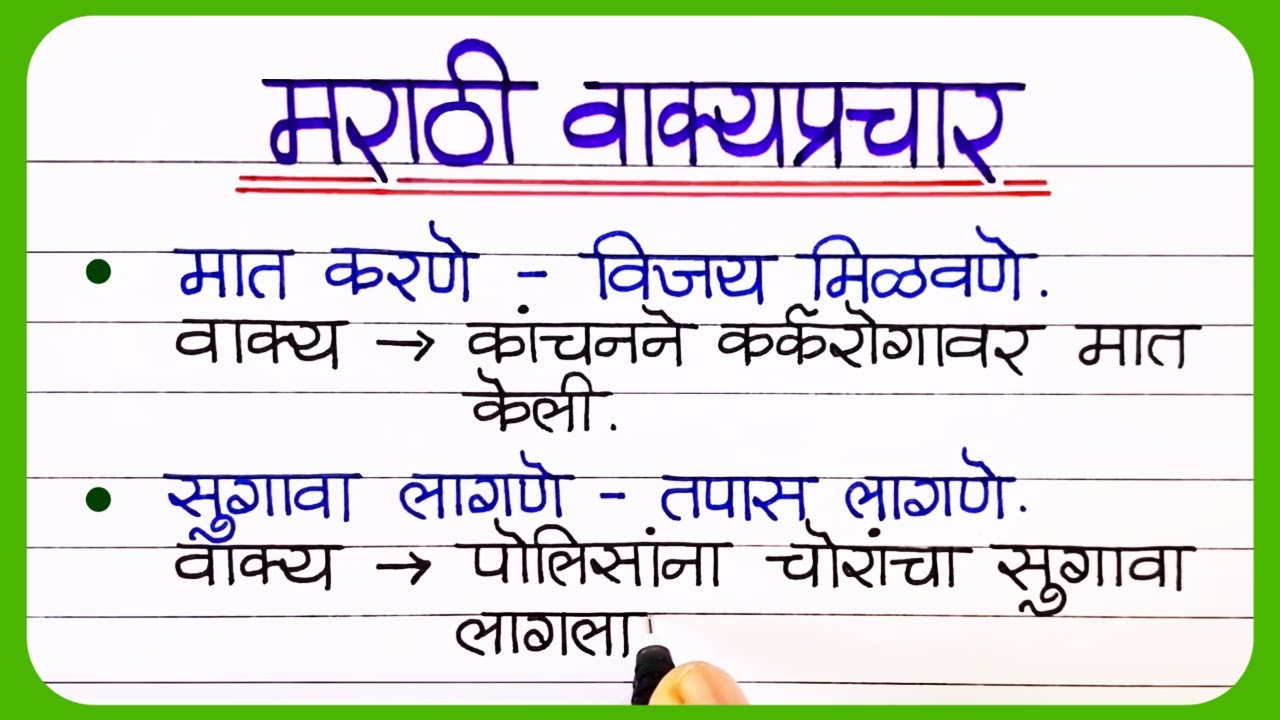 मराठी वाक्यप्रचार
मात करणे - विजय मिळवणे.
वाक्य → कांचनने कर्करोगावर मात
केली.
सुगावा लागणे - तपास लागणे.
वाक्य → पोलिसांना चोरांचा सुगावा
लागला